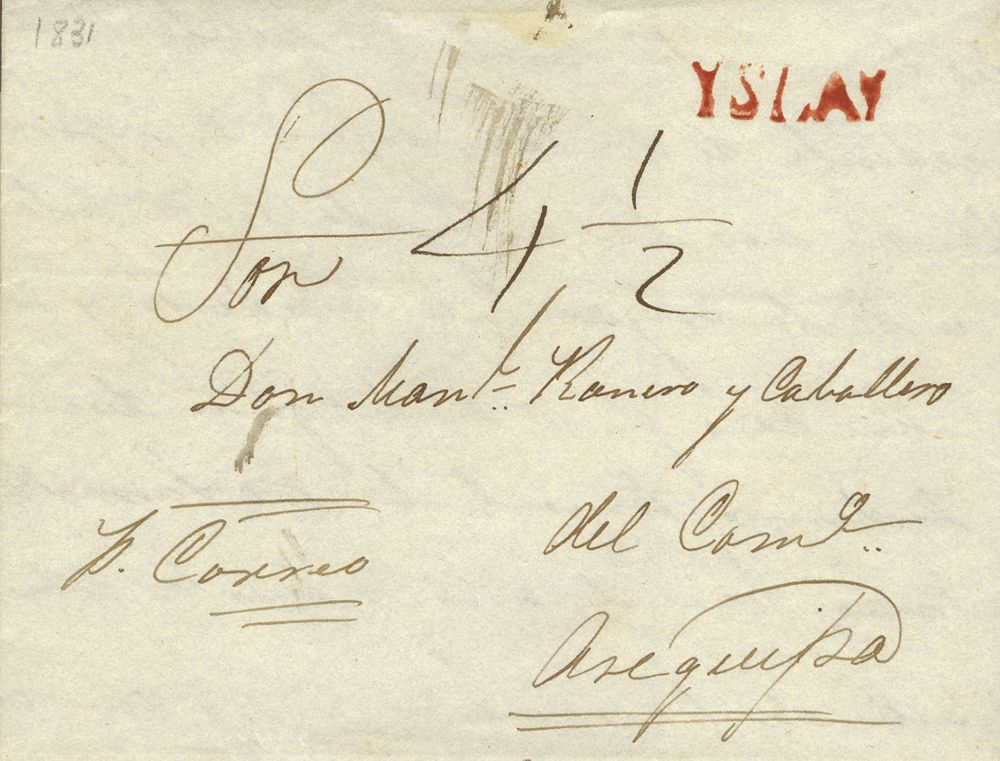 1831
YSLAY
Son 4 1/2
Don Manl. Romero y Caballero
del Como.
P. Correo
Arequipa